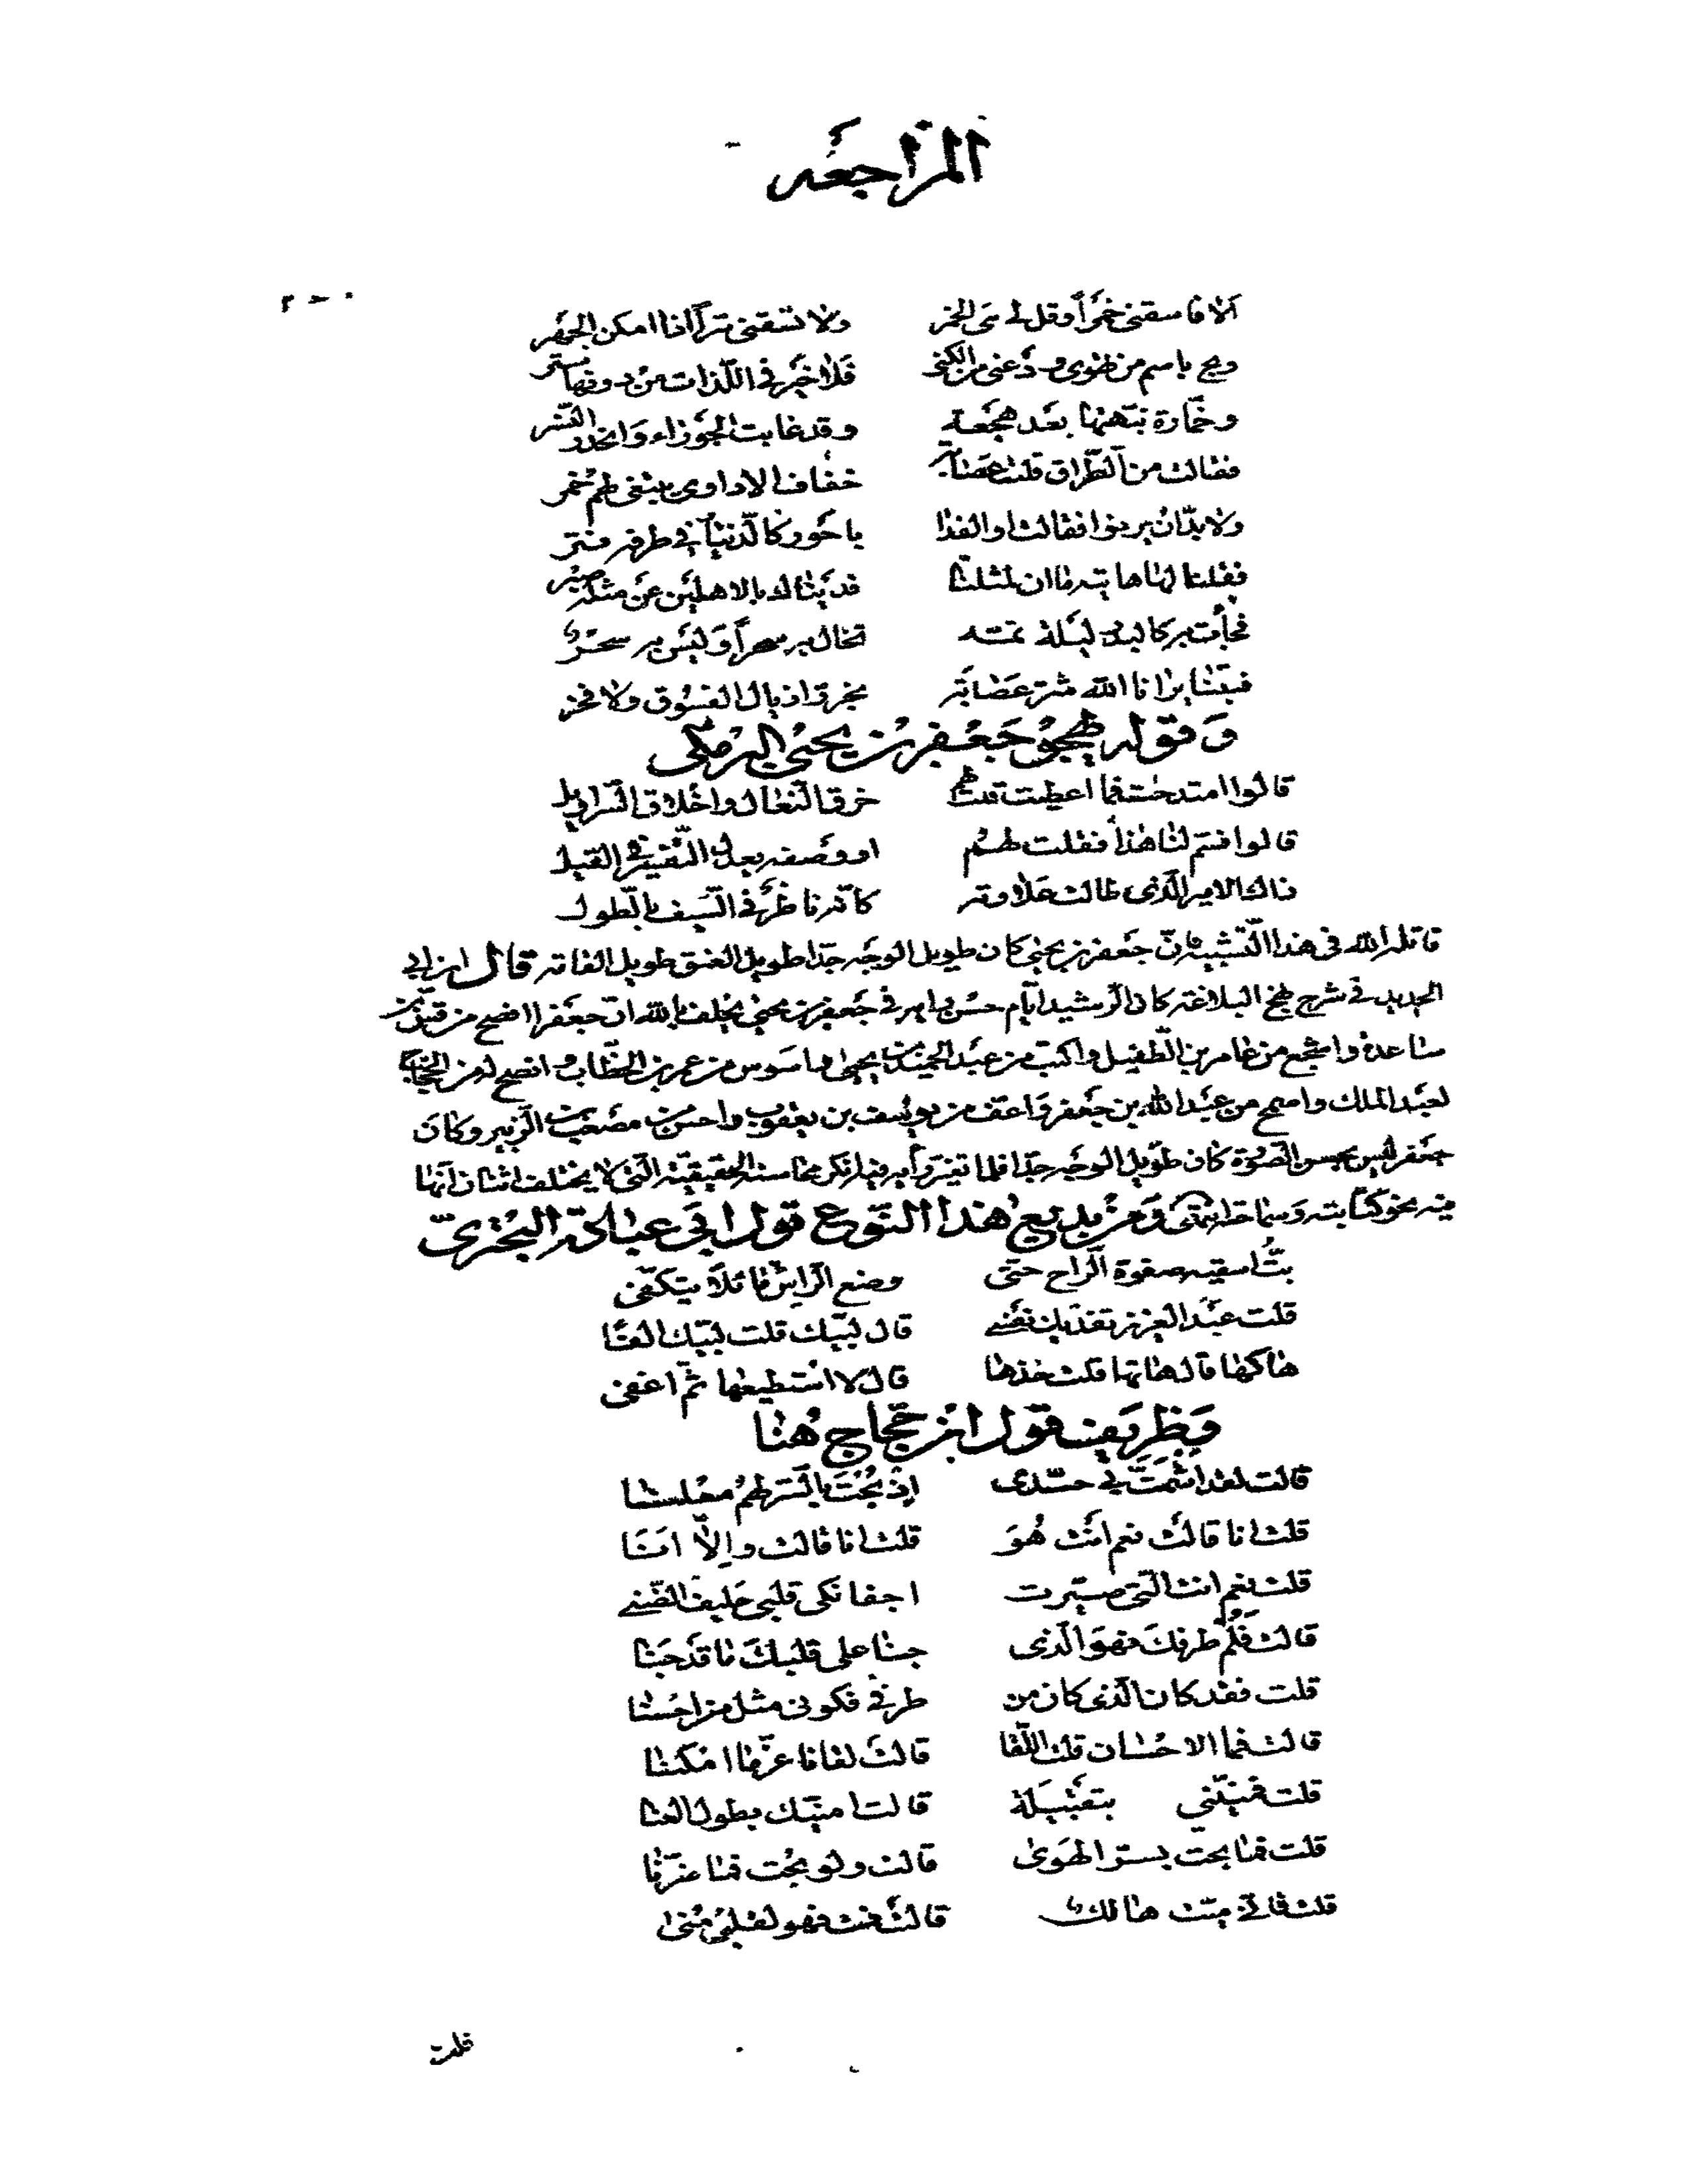 المراجعه
ألا فاسقنى خمراً وقل لى هى الخمر ولا تسقنى سراً اذا امكن الجهر
وبح باسم من تهوى ودعنى من الكنى فلا خير فى اللذات من دونها ستر
وخمّارة نبّهتها بعد هجعة وقد غابت الجوزاء وانحدر النسر
فقالت من الطّراق قلت عصابة خفاف الاداوى يبتغى لهم خمر
ولا بدّ ان يزنوا فقالت او الفدا باحور كالدّينار فى طرفه فتر
فقلنا لها هاتيه ما ان لمثلنا فديناك بالاهلين عن مثله صبر
فجأت به كالبدر ليلة تمّه تخال به سحراً وليس به سحر
فبتنا يرانا الله شرّ عصابة نجرّر اذيال الفسوق ولا فخر
وقوله يهجو جعفر بن يحيى البرمكى
قالوا امتدحت فما اعطيت قلت لهم خرق النعال واخلاق السرابيل
قالوا فسم لنا هذا فقلت لهم او وصفه يعدل التفسير فى القيل
ذاك الامير الّذى طالت علاوته كانّه ناظر فى السّيف بالطول
قاتله الله فى هذا التشبيه فانّ جعفر بن يحيى كان طويل الوجه جدّا طويل العنق طويل القامه قال ابن ابى
الحديد فى شرح نهج البلاغه كان الرشيد ايّام حسن رايه فى جعفر بن يحيى يحلف بالله انّ جعفرا افصح من قسّ بن
ساعدة واشجع من عامر بن الطفيل واكتب من عبد الحميد بن يحيى واسوس من عمر بن الخطّاب وانصح له من الحجّاج
لعبد الملك واسمح من عبد الله بن جعفر واعف من يوسف بن يعقوب واحسن من مصعب بن الزبير وكان
جعفر ليس بحسن الصّورة كان طويل الوجه جدّا فلما تغيّر رأيه فيه انكر محاسنه الحقيقيّة الّتى لا يختلف اثنان انّها
فيه نحو كتابته وسماحته انتهى ومن بديع هذا النّوع قول ابى عبادة البحترىّ
بتّ اسقيه صفوة الرّاح حتّى وضع الرّاس مائلاً يتكفّى
قلت عبد العزيز تفديك نفسى قال لبّيك قلت لبّيك الفا
هاكها قال هاتها قلت خذها قال لا استطيعها ثمّ اغفى
وظريف قول ابن حجّاج هنا
قالت لقد اشمتّ بى حسّدى اذ بحت بالسّر لهم معلنا
قلت انا قالت نعم انت هو قلت انا قالت والّا انا
قلت نعم انت الّتى صيّرت اجفانكى قلبى حليف الضّنى
قالت فلم طرفك فهو الّذى جنا على قلبك ما قد جنا
قلت فقد كان الّذى كان من طرفى فكونى مثل من احسنا
قالت فما الاحسان قلت اللّقا قالت لقانا عزّ ما امكنا
قلت فمنّينى بتقبيلة قالت امنّيك بطول العنا
قلت فما بحت بسرّ الهوى قالت ولو بحت فما عزّنا
قلت فانّى ميّت هالك قالت فمت فهو لقلبى منى
قلت